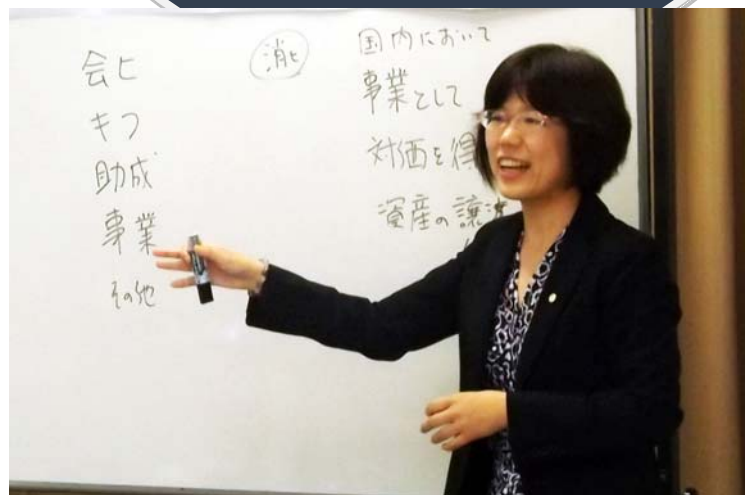 会ヒ
キフ
助成
事業
その他
消ヒ
国内において
事業として
対価を得
資産の譲渡